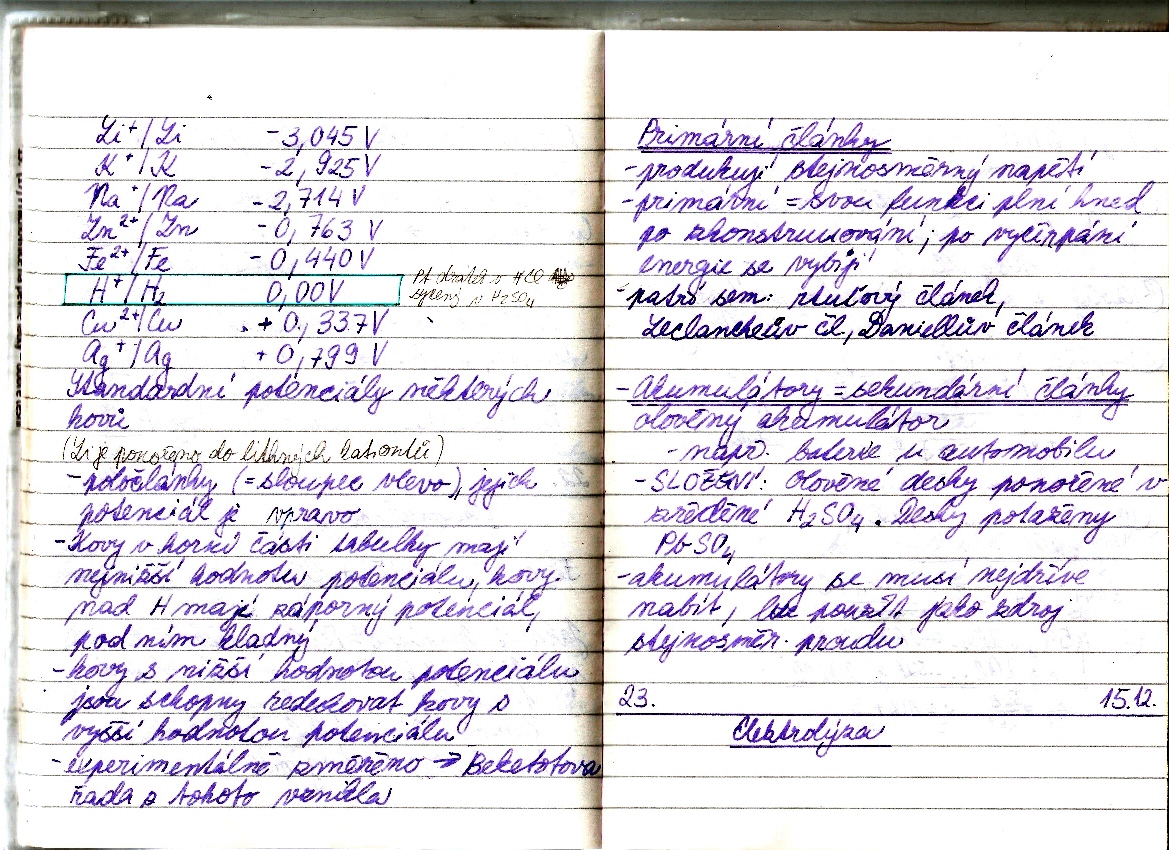 Li⁺/Li -3,045 V
K⁺/K -2,925 V
Na⁺/Na -2,714 V
Zn²⁺/Zn -0,763 V
Fe²⁺/Fe -0,440 V
H⁺/H₂ 0,00 V
Pt drátek v HCl
sycený v H₂SO₄
Cu²⁺/Cu +0,337 V
Ag⁺/Ag +0,799 V
Standardní potenciály některých
kovů
(Li je ponořeno do lithných kationtů)
- poločlánky (= sloupec vlevo), jejich
potenciál je vpravo
- Kovy v horní části tabulky mají
nejnižší hodnotu potenciálu, kovy
nad H mají záporný potenciál,
pod ním kladný
- kovy s nižší hodnotou potenciálu
jsou schopny redukovat kovy s
vyšší hodnotou potenciálu
- experimentálně změřeno → Beketotova
řada z tohoto vznikla
Primární články
- produkují stejnosměrný napětí
- primární = svou funkci plní hned
po zkonstruování; po vyčerpání
energie se vybijí
- patří sem: rtuťový článek,
Leclancheův čl., Daniellův článek
- Akumulátory = sekundární články
olověný akumulátor
- např. baterie u automobilu
- SLOŽENÍ: Olověné desky ponořené v
zředěné H₂SO₄. Desky potaženy
PbSO₄
- akumulátory se musí nejdříve
nabít, lze použít jako zdroj
stejnosměr. proudu
23. 15.12.
Elektrolýza